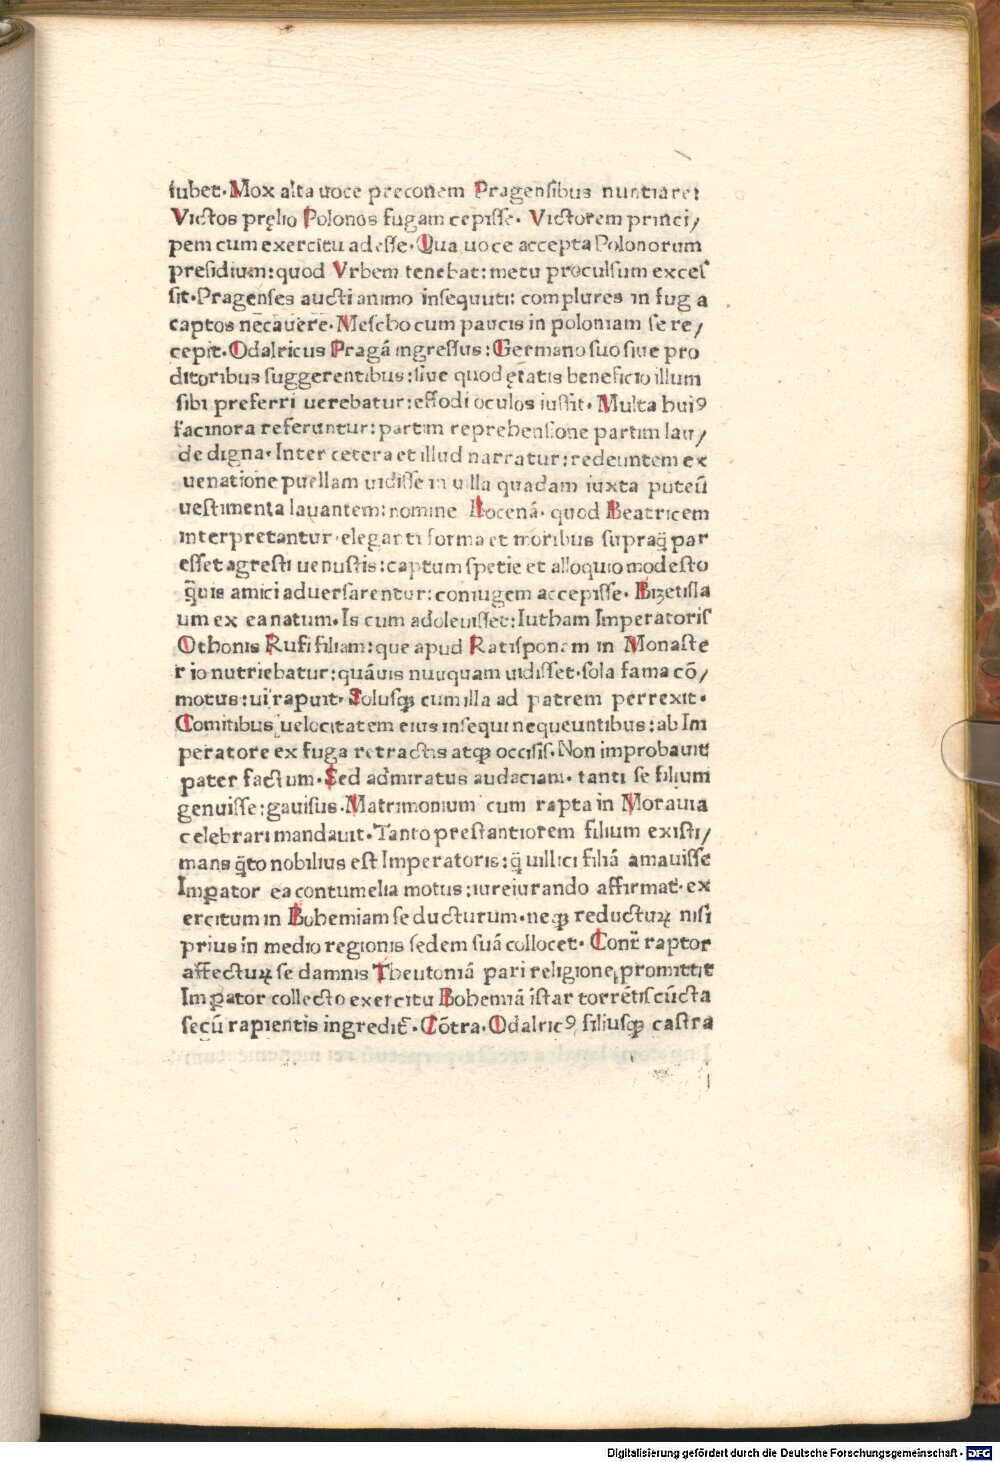 iubet. Mox alta uoce preconem Pragensibus nuntiaret
Victos pręlio Polonos fugam cepisse. Victorem princi/
pem cum exercitu adesse. Qua uoce accepta Polonorum
presidium: quod Vrbem tenebat: metu proculsum exces
sit. Pragenses aucti animo insequuti: complures in fug a
captos necauere. Mescho cum paucis in poloniam se re/
cepit. Odalricus Pragā ingressus: Germano suo siue pro
ditoribus suggerentibus: siue quod ętatis beneficio illum
sibi preferri uerebatur: effodi oculos iussit. Multa huiꝰ
facinora referuntur: partim reprehensione partim lau/
de digna. Inter cetera et illud narratur: redeuntem ex
uenatione puellam uidisse in uilla quadam iuxta puteū
uestimenta lauantem: nomine Bocenā. quod Beatricem
interpretantur. eleganti forma et moribus supra q̄ par
esset agresti uenustis: captum spetie et alloquio modesto
q̄uis amici aduersarentur: coniugem accepisse. Bizetisla
um ex ea natum. Is cum adoleuisset: Iutham Imperatoris
Othonis Rufi filiam: que apud Ratisponam in Monaste
r io nutriebatur: quāuis nunquam uidisset. sola fama cō/
motus: ui rapuit. Solusqꝫ cum illa ad patrem perrexit.
Comitibus uelocitatem eius insequi nequeuntibus: ab Im
peratore ex fuga retractis atqꝫ occisis. Non improbauit
pater factum. Sed admiratus audaciam. tanti se filium
genuisse: gauisus. Matrimonium cum rapta in Morauia
celebrari mandauit. Tanto prestantiorem filium existi/
mans q̄to nobilius est Imperatoris: q̄ uillici filiā amauisse
Imꝑator ea contumelia motus: iureiurando affirmat. ex
ercitum in Bohemiam se ducturum. neqꝫ reductuꝝ nisi
prius in medio regionis sedem suā collocet. Cont̄ raptor
affectuꝝ se damnis Theutoniā pari religione promittit
Imꝑator collecto exercitu Bohemiā istar torrētis cūcta
secū rapientis ingredit̄. Cōtra. Odalricꝰ filiusqꝫ castra
Digitalisierung gefördert durch die Deutsche Forschungsgemeinschaft - DFG